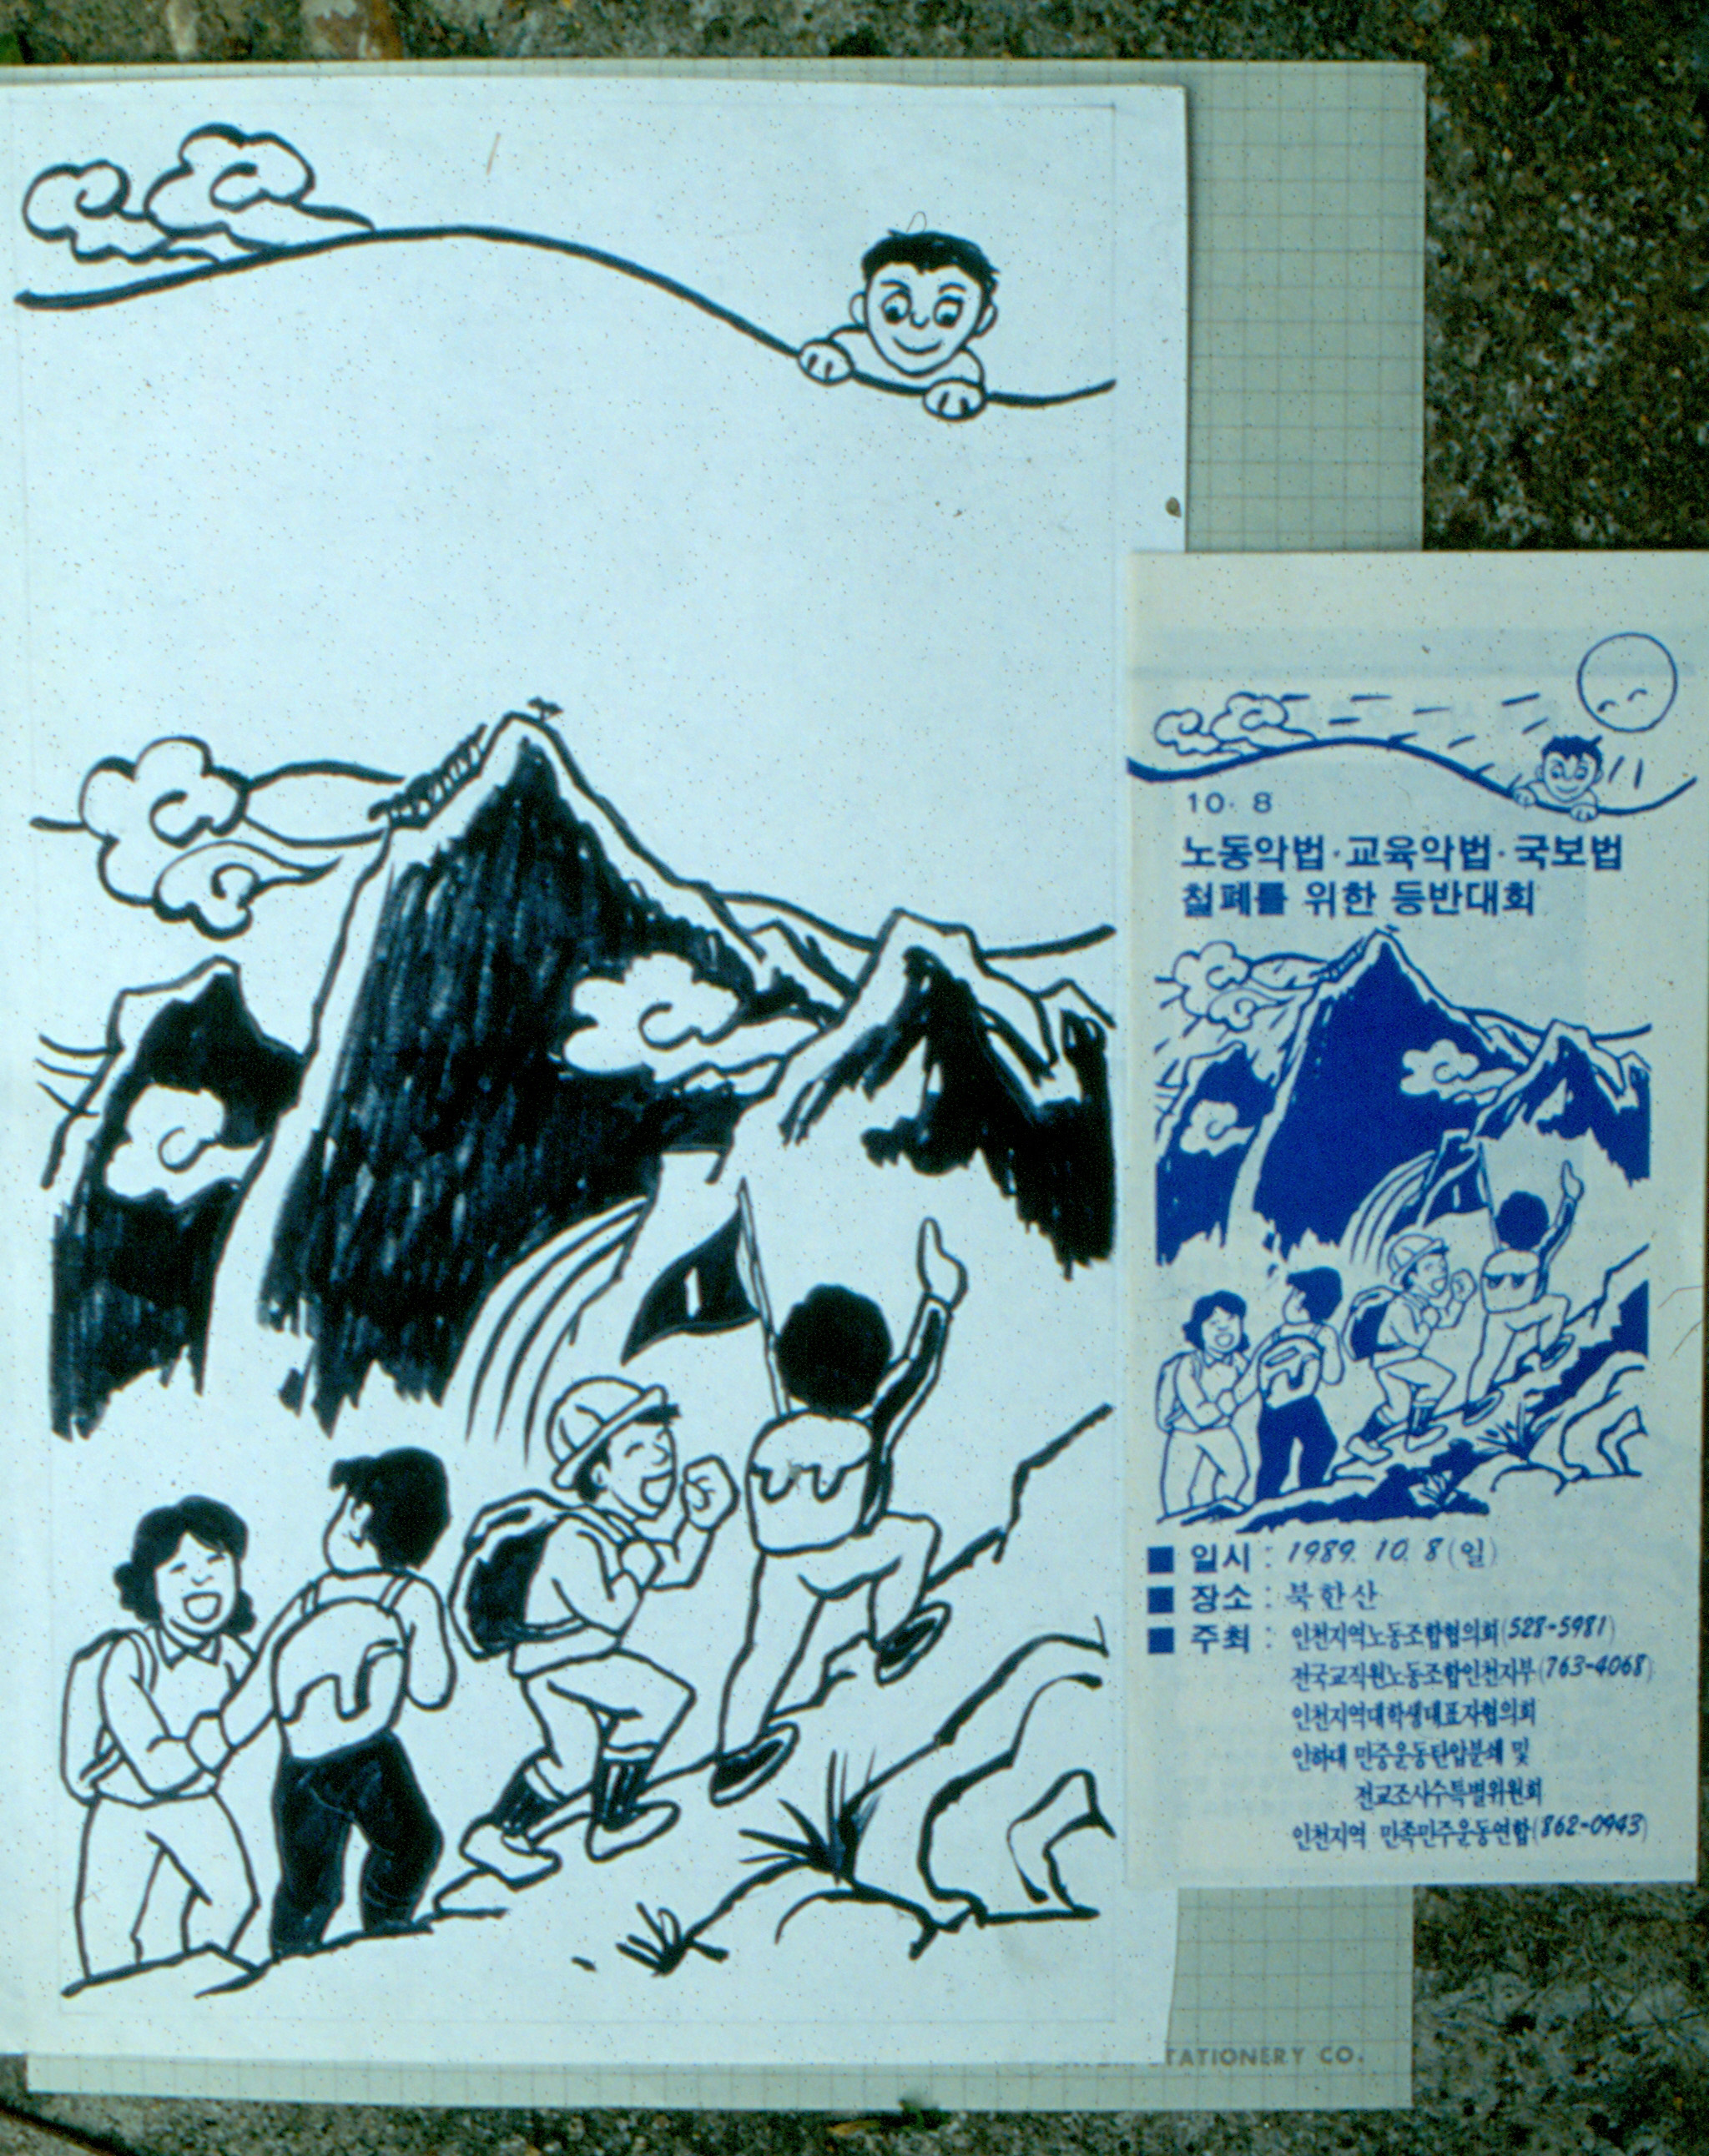 10. 8
노동악법·교육악법·국보법
철폐를 위한 등반대회
■ 일시 : 1989. 10. 8 (일)
■ 장소 : 북한산
■ 주최 : 인천지역노동조합협의회(528-5981)
전국교직원노동조합인천지부(763-4068)
인천지역대학생대표자협의회
인하대 민중운동탄압분쇄 및
전교조사수특별위원회
인천지역 민족민주운동연합(862-0943)
STATIONERY CO.